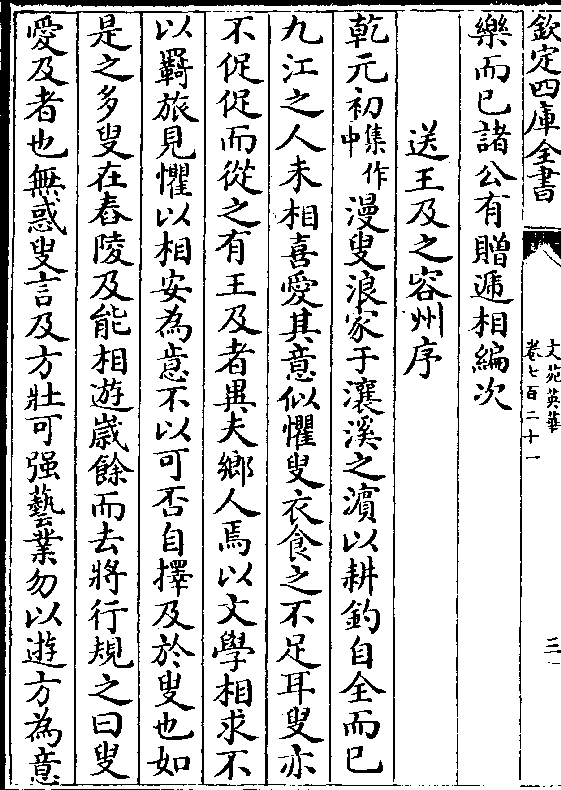 欽定四庫全書
文苑英華
卷七百二十一
三
樂而已諸公有贈遞相編次
送王及之容州序
乾元初集作中漫叟浪家于瀼溪之濵以耕釣自全而已
九江之人未相喜愛其意似懼叟衣食之不足耳叟亦
不促促而從之有王及者異夫鄉人焉以文學相求不
以羇旅見懼以相安為意不以可否自擇及於叟也如
是之多叟在舂陵及能相遊歳餘而去將行規之曰叟
愛及者也無惑叟言及方壯可强藝業勿以遊方為意